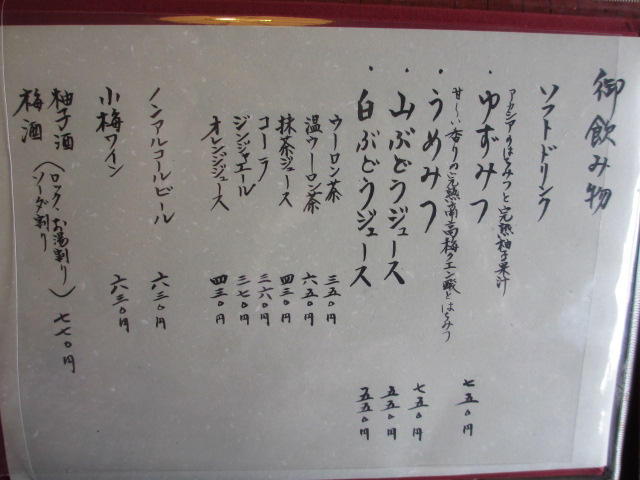 御飲み物
ソフトドリンク
・ゆずみつ 七五〇円
アカシアのはちみつと完熟柚子果汁
・うめみつ 七五〇円
甘〜い香りの完熟南高梅クエン酸とはちみつ
・山ぶどうジュース 五五〇円
・白ぶどうジュース 五五〇円
ウーロン茶 三五〇円
温ウーロン茶 六五〇円
抹茶ジュース 四三〇円
コーラ 三六〇円
ジンジャエール 三七〇円
オレンジジュース 四三〇円
ノンアルコールビール 六三〇円
小梅ワイン 六三〇円
柚子酒
梅酒
(ロック、お湯割り
ソーダ割り) 七七〇円